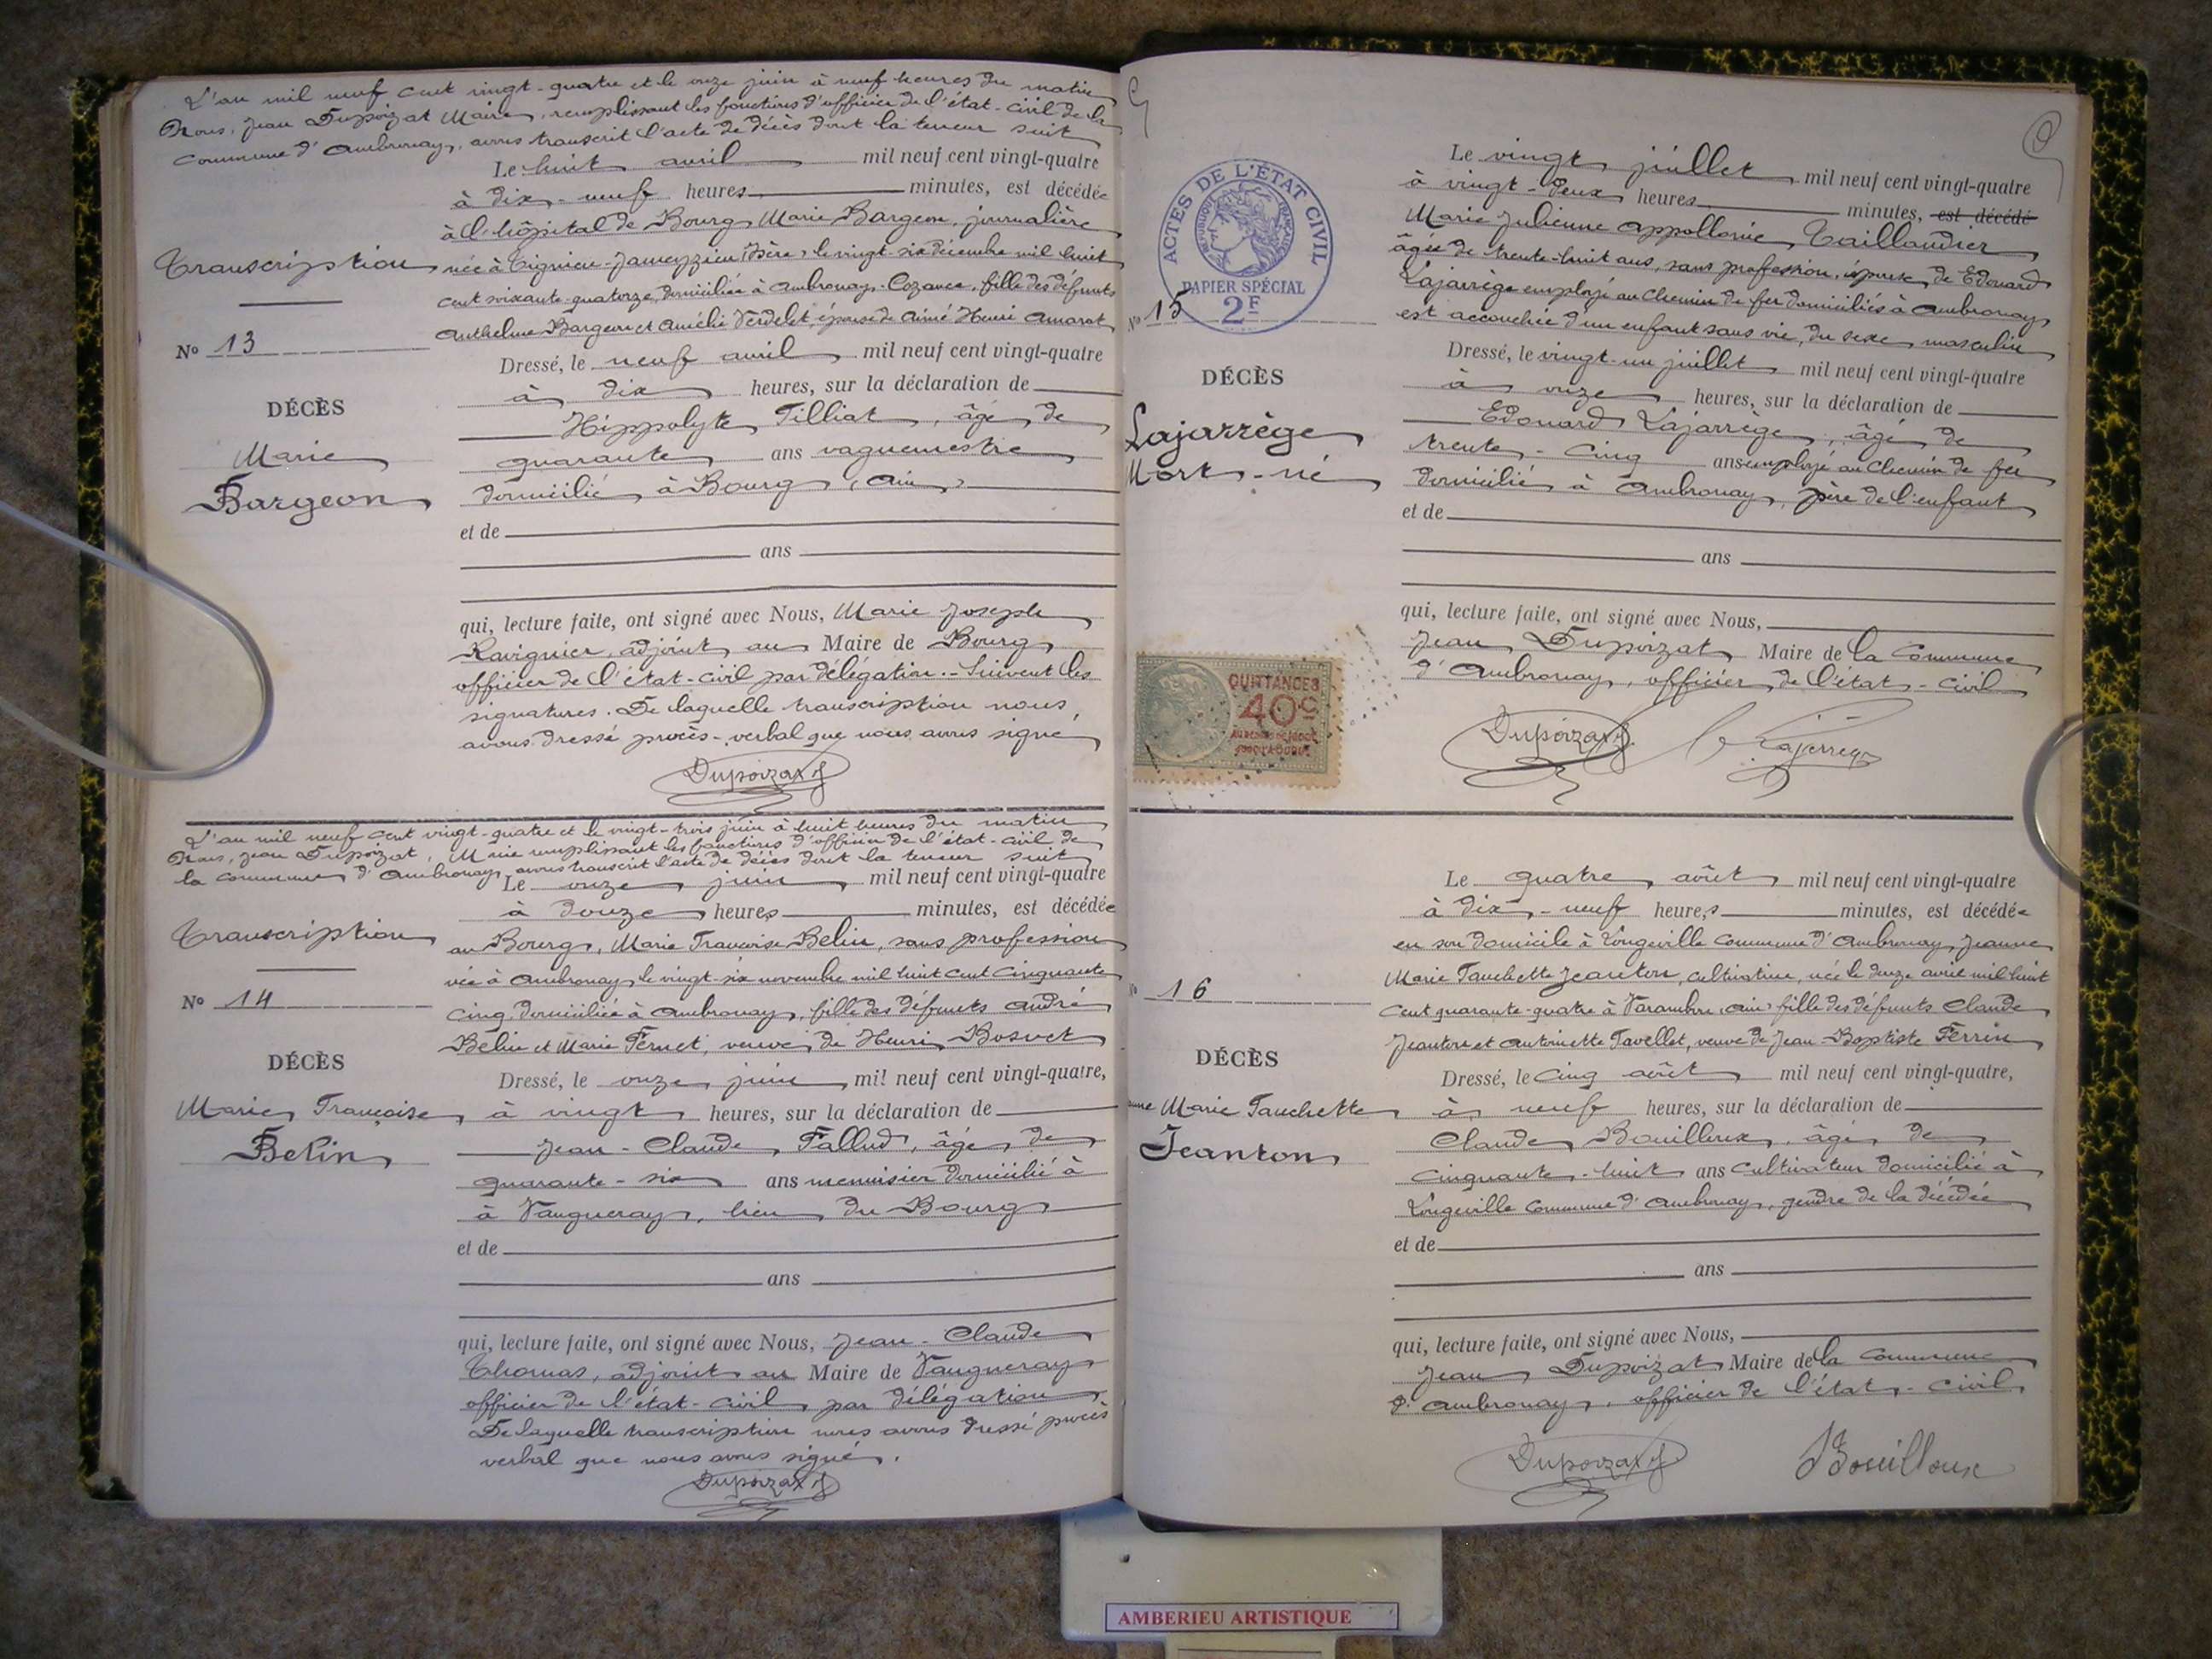 L'an mil neuf cent vingt-quatre et le onze juin à neuf heures du matin
Nous, Jean Dupoizat Maire, remplissant les fonctions d'officier de l'état-civil de la
commune d'Ambronay, avons transcrit l'acte de décès dont la teneur suit
Le huit avril mil neuf cent vingt-quatre
à dix-neuf heures minutes, est décédée
à l'hôpital de Bourg, Marie Bargeon, journalière
Transcription
née à Tignieu-Jameyzieu (Isère) le vingt-six décembre mil huit
cent soixante-quatorze, domiciliée à Ambronay-Cozance, fille des défunts
Anthelme Bargeon et Amélie Verdelet, épouse de Aimé Henri Amarot
No 13
Dressé, le neuf avril mil neuf cent vingt-quatre
à dix heures, sur la déclaration de
DÉCÈS
Hippolyte Tilliat, âgé de
Marie
quarante ans vaguemestre
Bargeon
domicilié à Bourg (Ain)
et de
ans
qui, lecture faite, ont signé avec Nous, Marie Joseph
Ravignier, adjoint au Maire de Bourg
officier de l'état-civil par délégation. - Suivent les
signatures. De laquelle transcription nous
avons dressé procès-verbal que nous avons signé
Dupoizat J
L'an mil neuf cent vingt-quatre et le vingt-trois juin à huit heures du matin
Nous, Jean Dupoizat, Maire remplissant les fonctions d'officier de l'état-civil de
la commune d'Ambronay, avons transcrit l'acte de décès dont la teneur suit
Le onze juin mil neuf cent vingt-quatre
à douze heures minutes, est décédée
Transcription
au Bourg, Marie Françoise Belin, sans profession
née à Ambronay, le vingt-six novembre mil huit cent cinquante
No 14
cinq, domiciliée à Ambronay, fille des défunts André
Belin et Marie Fernet, veuve de Henri Bosvet
DÉCÈS
Dressé, le onze juin, mil neuf cent vingt-quatre,
Marie Françoise
à vingt heures, sur la déclaration de
Belin
Jean-Claude Fallud, âgé de
quarante-six ans menuisier domicilié à
à Vaugneray, lieu du Bourg
et de
ans
qui, lecture faite, ont signé avec Nous, Jean-Claude
Thomas, adjoint au Maire de Vaugneray
officier de l'état-civil par délégation
De laquelle transcription nous avons dressé procès
verbal que nous avons signé.
Dupoizat J
9
ACTES DE L'ÉTAT CIVIL
RÉPUBLIQUE FRANÇAISE
PAPIER SPÉCIAL
2F
Le vingt juillet mil neuf cent vingt-quatre
à vingt-deux heures minutes, est décédé
Marie Julienne Appollonie Taillandier
âgée de trente-huit ans, sans profession, épouse de Edouard
Lajarrège employé au chemin de fer domiciliés à Ambronay
No 15
est accouchée d'un enfant sans vie, du sexe masculin
Dressé, le vingt-un juillet mil neuf cent vingt-quatre
DÉCÈS
à onze heures, sur la déclaration de
Lajarrège
Edouard Lajarrège, âgé de
Mort-né
trente-cinq ans employé au chemin de fer
domicilié à Ambronay, père de l'enfant
et de
ans
qui, lecture faite, ont signé avec Nous,
Jean Dupoizat Maire de la commune
d'Ambronay, officier de l'état-civil
QUITTANCES
40c
Dupoizat J. Lajarrège
Le quatre août mil neuf cent vingt-quatre
à dix-neuf heures minutes, est décédée
en son domicile à Longeville commune d'Ambronay, Jeanne
Marie Fanchette Jeanton, cultivatrice, née le douze avril mil huit
No 16
cent quarante-quatre à Varambon (Ain) fille des défunts Claude
Jeanton et Antoinette Tavellet, veuve de Jean-Baptiste Ferrin
DÉCÈS
Dressé, le cinq août mil neuf cent vingt-quatre,
nne Marie Fanchette
à neuf heures, sur la déclaration de
Jeanton
Claude Bouilloux, âgé de
cinquante-huit ans cultivateur domicilié à
Longeville commune d'Ambronay, gendre de la décédée
et de
ans
qui, lecture faite, ont signé avec Nous,
Jean Dupoizat Maire de la commune
d'Ambronay, officier de l'état-civil
Dupoizat J Bouilloux
AMBERIEU ARTISTIQUE